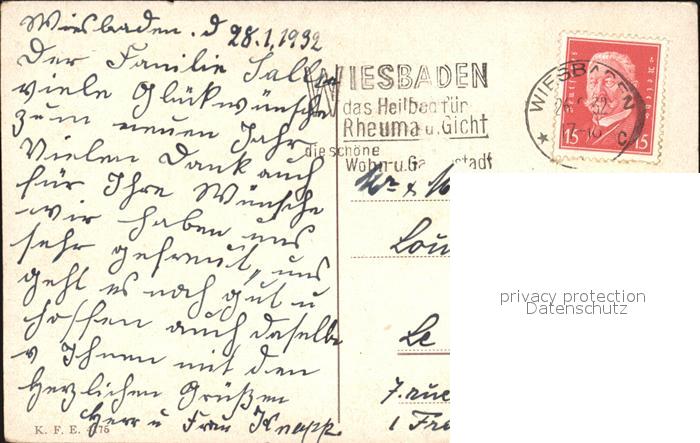 Wiesbaden. d 28.1.1932
Der Familie
viele Glückwünsche
zum neuen Jahr
Vielen Dank auch
für Ihre Wünsche
wir haben uns
sehr gefreut, uns
geht es noch gut u
hoffen auch dasselbe
v Ihnen mit den
Herzlichen Grüßen
Herr u Frau Knapp
K. F. E.
WIESBADEN
das Heilbad für
Rheuma u. Gicht
die schöne
Wohn- u. Ga stadt
WIESBADEN
15 15
C
Le
7. rue
1 Fr
privacy protection
Datenschutz